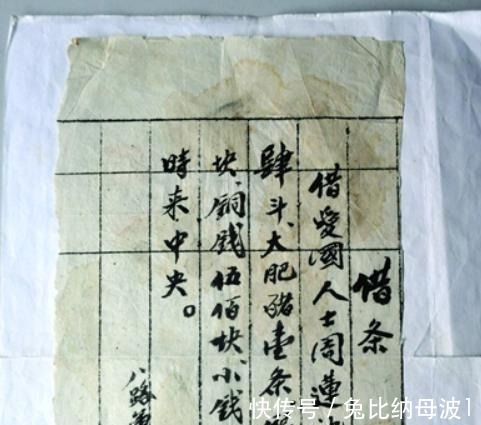 借条
借愛國人士周蓮
肆斗、大肥豬壹条
块、铜钱伍佰块、小钱
時来中央。
八路
快传号／兔比纳母波1